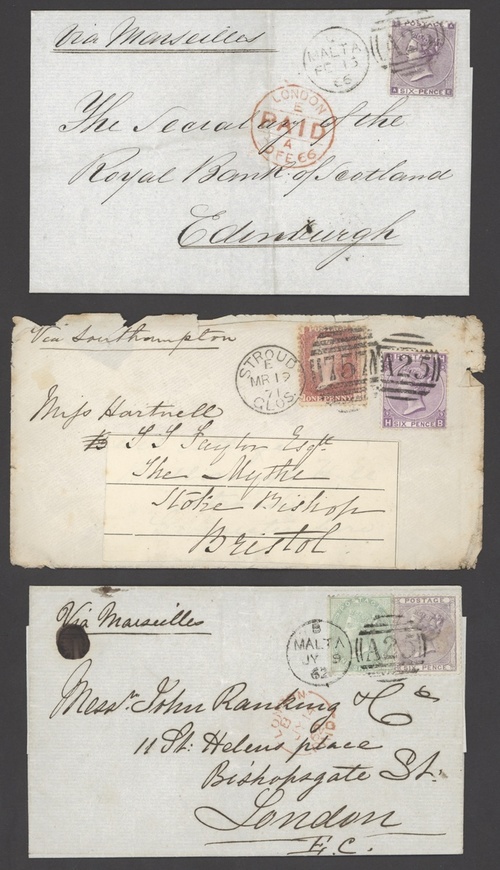 Via Marseilles
MALTA
FE 13
66
A25
SIX PENCE
LONDON
E
PAID
A
FE 66
The Secretary of the
Royal Bank of Scotland
Edinburgh
Via Southampton
STROUD
E
MR 19
71
GLOS
757
ONE PENNY
A25
H B
SIX PENCE
Miss Hartnell
Taylor Esqre
The Mythe
Stoke Bishop
Bristol
Via Marseilles
B
MALTA
JY 9
62
POSTAGE
A25
SIX PENCE
LONDON
Messrs John Ranking & Co
11 St. Helens place
Bishopsgate St.
London
E.C.